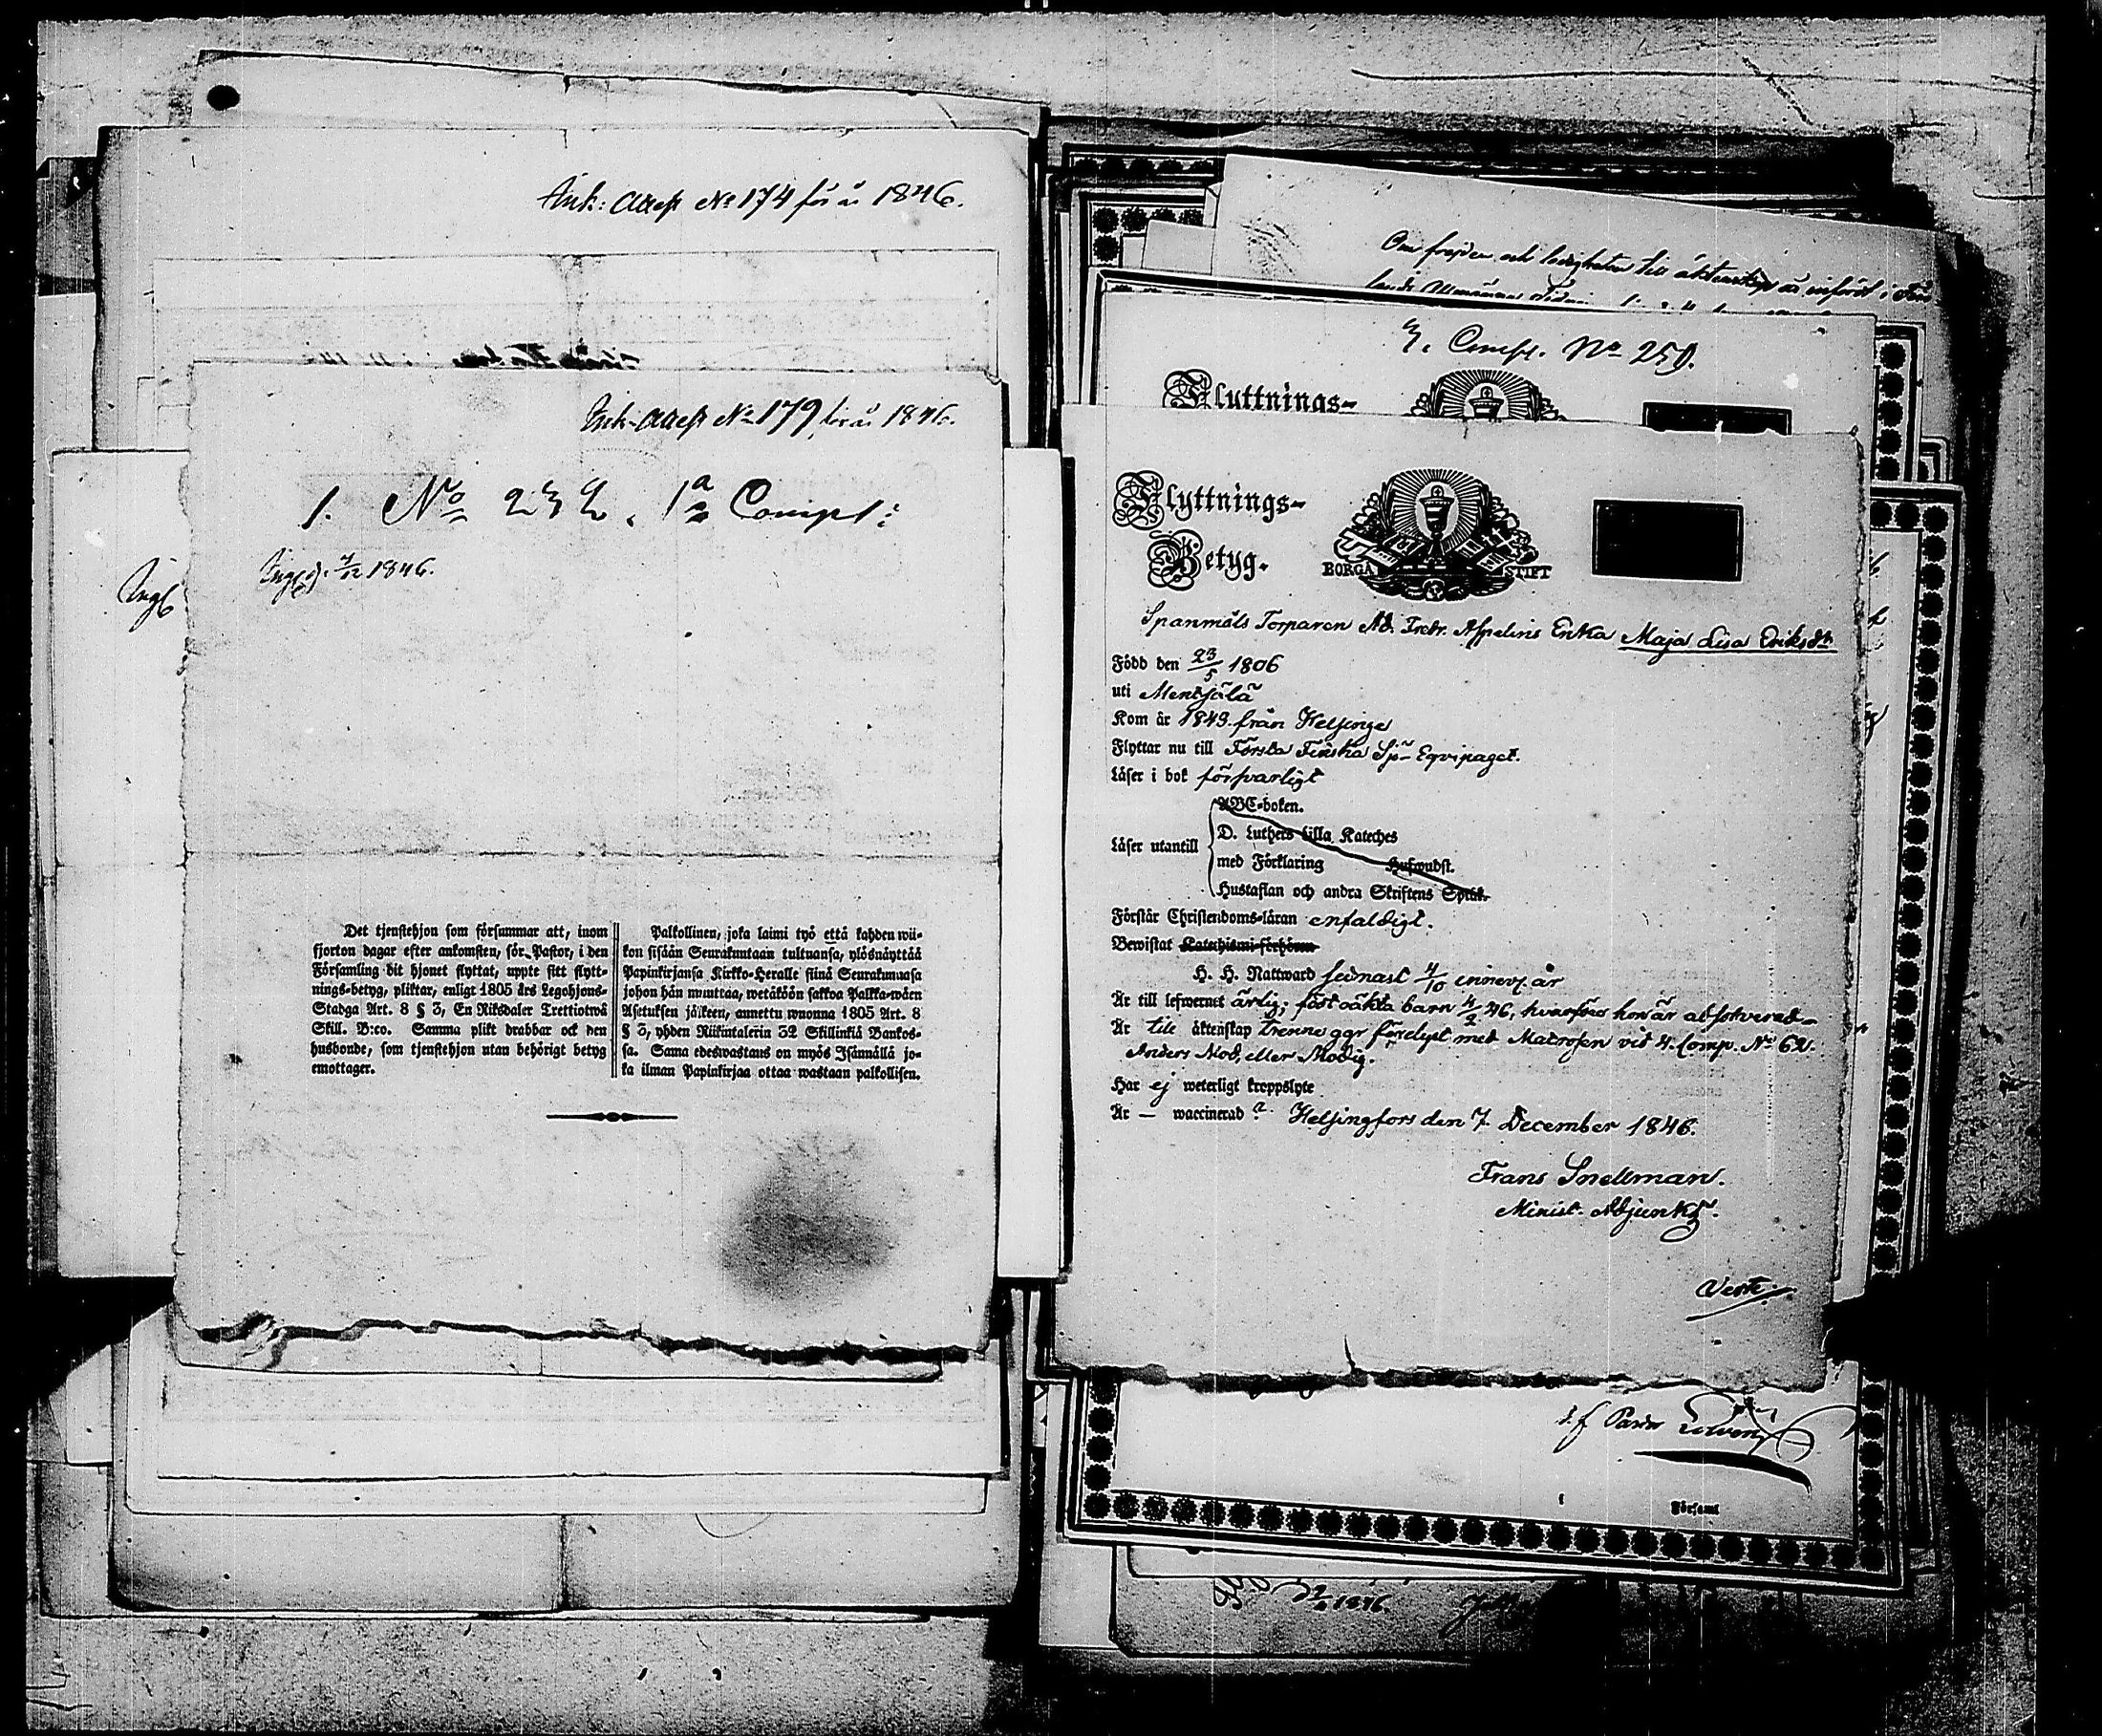 Ank: attest No 174 för år 1846.
Ank. attest No 179 för år 1846.
1. No 232. 1a Compl:
Ingifv. 7/12 1846.
Det tjenstehjon som försummar att, inom
fjorton dagar efter ankomsten, för Pastor, i den
Församling dit hjonet flyttat, uppte sitt flytt-
nings-betyg, pliktar, enligt 1805 års Legohjons-
Stadga Art. 8 § 3, En Riksdaler Trettiotwå
Skill. B:co. Samma plikt drabbar ock den
husbonde, som tjenstehjon utan behörigt betyg
emottager.
Palkollinen, joka laimi lyö että kahden wii-
kon sisään Seurakuntaan tultuansa, ylösnäyttää
Papinkirjansa Kirkko-Heralle siinä Seurakunnasa
johon hän muuttaa, wetäköön sakkoa Palkka-wäen
Asetuksen jälkeen, annettu wuonna 1805 Art. 8
§ 3, yhden Riikintalerin 32 Skillinkiä Bankos-
sa. Sama edeswastaus on myös Isännällä jo-
ka ilman Papinkirjaa ottaa wastaan palkollisen.
Om frejden och ledigheten till äktenskap är infördt i
Compl. No 250.
Flyttnings-
Flyttnings-
Betyg.
BORGÅ STIFT
Spanmåls Torparen Ad. Fredr. Aspelins Enka Maja Lisa Eriksdr
Född den 23/5 1806
uti Mentsälä
Kom år 1843 från Helsinge
Flyttar nu till Första Finska Sjö-Eqvipaget.
Läser i bok försvarligt
Läser utantill
ABC-boken.
D. Luthers lilla Kateches
med Förklaring Hufwudst.
Hustaflan och andra Skriftens Språk.
Förstår Christendoms-läran enfaldigt.
Bewistat Katechismi-förhören
H. H. Nattward sednast 4/10 innev. år
Är till lefwernet ärlig; födt oäkta barn 4/2 46, hvarföre hon är absolverad
Är till äktenskap trenne ggr förelyst med Matrosen vid 4. Comp. No 62.
Anders Mod, eller Modig.
Har ej weterligt kroppslyte
Är — waccinerad ? Helsingfors den 7 December 1846.
Frans Snellman.
Minist. Adjunkt.
Verte.
Församl
1846.